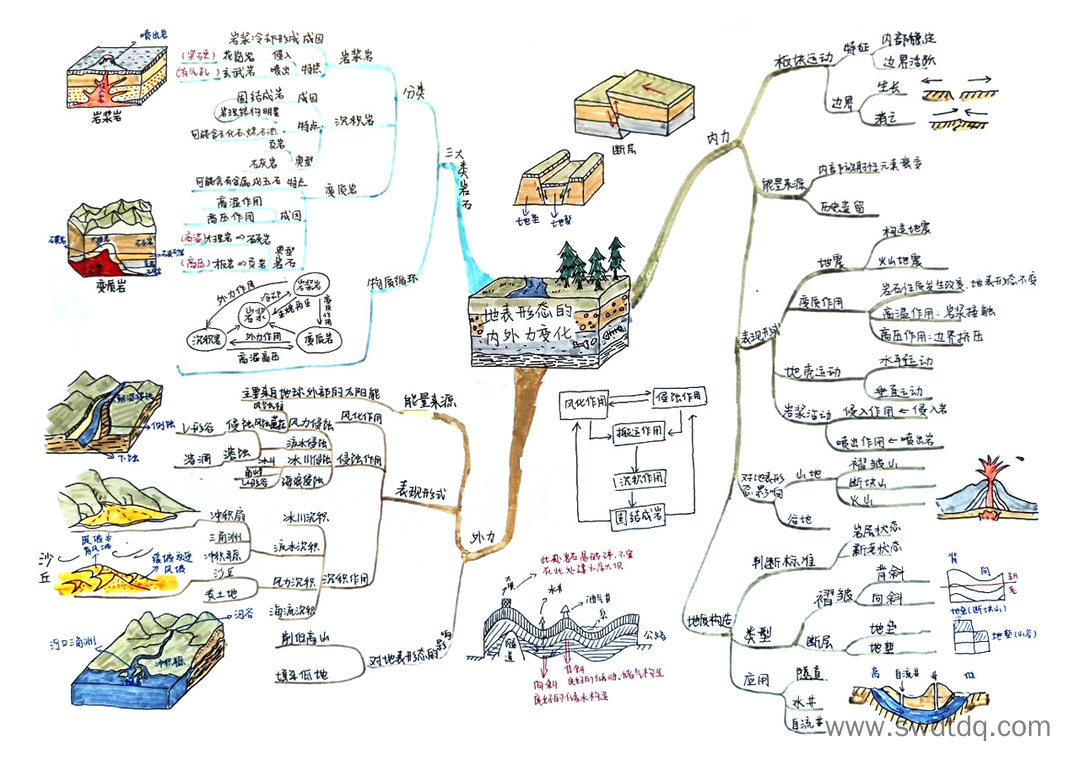 喷出岩
岩浆岩
岩浆冷却形成 成因
(坚硬) 花岗岩 侵入
(有气孔) 玄武岩 喷出 特点
岩浆岩
固结成岩 成因
岩理结构明显
可能含有化石、煤、石油
特点
页岩
石灰岩 典型
沉积岩
可能含有金属或玉石 特点
高温作用
高压作用 成因
(高温) 大理岩 ⇒ 石灰岩
(高压) 板岩 ⇒ 页岩
典型
岩石
变质岩
分类
三大类岩石
物质循环
外力作用
冷却
岩浆岩
岩浆
重熔再生
变质作用
沉积岩
外力作用
变质岩
高温高压
变质岩
地表形态的
内外力变化
断层
地垒
地堑
内力
板块运动
特征
内部稳定
边界活跃
边界
生长
消亡
能量来源
内部放射性元素衰变
历史遗留
表现形式
地震
构造地震
火山地震
变质作用
岩石性质发生改变,地表形态不变
高温作用:岩浆接触
高压作用:边界挤压
地壳运动
水平运动
垂直运动
岩浆活动
侵入作用 ← 侵入岩
喷出作用 ← 喷出岩
对地表形态影响
山地
褶皱山
断块山
火山
谷地
地质构造
判断标准
岩层状态
新老状态
类型
褶皱
背斜
向斜
断层
地垒
地堑
应用
隧道
水井
自流井
背
向
新
老
地垒(断块山)
地堑(山谷)
高
自流井
低
外力
能量来源
主要来自地球外部的太阳能
表现形式
风化作用
侵蚀作用
风力侵蚀
风蚀蘑菇
流水侵蚀
侵蚀
V形谷
溶蚀
溶洞
冰川侵蚀
冰斗
角峰
U形谷
海浪侵蚀
沉积作用
冰川沉积
流水沉积
冲积扇
三角洲
冲积平原
风力沉积
沙丘
黄土地
海流沉积
对地表形态的影响
削低高山
填平低地
侧蚀
下蚀
沙丘
缓坡为迎风坡
河谷
河口三角洲
冲积平原
风化作用
侵蚀作用
搬运作用
沉积作用
固结成岩
此处岩石易破碎,不宜
在此处建水库大坝
大坝
水井
油气井
公路
隧道
向斜
背斜
良好的储油、储气构造
良好的储水构造
www.swdtdq.com